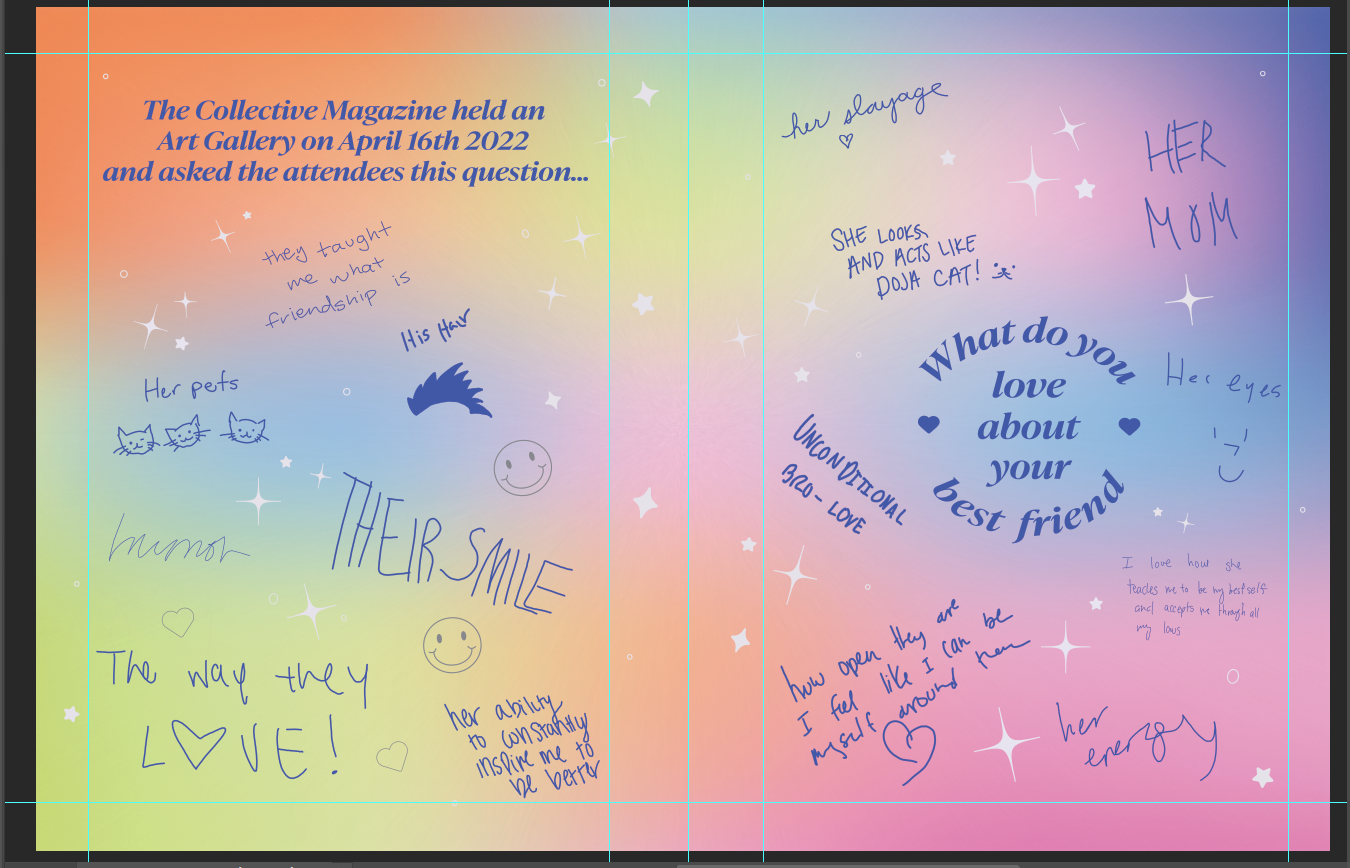 The Collective Magazine held an
Art Gallery on April 16th 2022
and asked the attendees this question...
they taught
me what
friendship is
His Hair
Her pets
THEIR SMILE
humor
The way they
LOVE!
her ability
to constantly
inspire me to
be better
her slayage
HER
MOM
SHE LOOKS
AND ACTS LIKE
DOJA CAT!
What do you
love
about
your
best friend
Her eyes
UNCONDITIONAL
BRO-LOVE
I love how she
teaches me to be my best self
and accepts me through all
my
how open they are
I feel like I can be
myself around them
her
energy